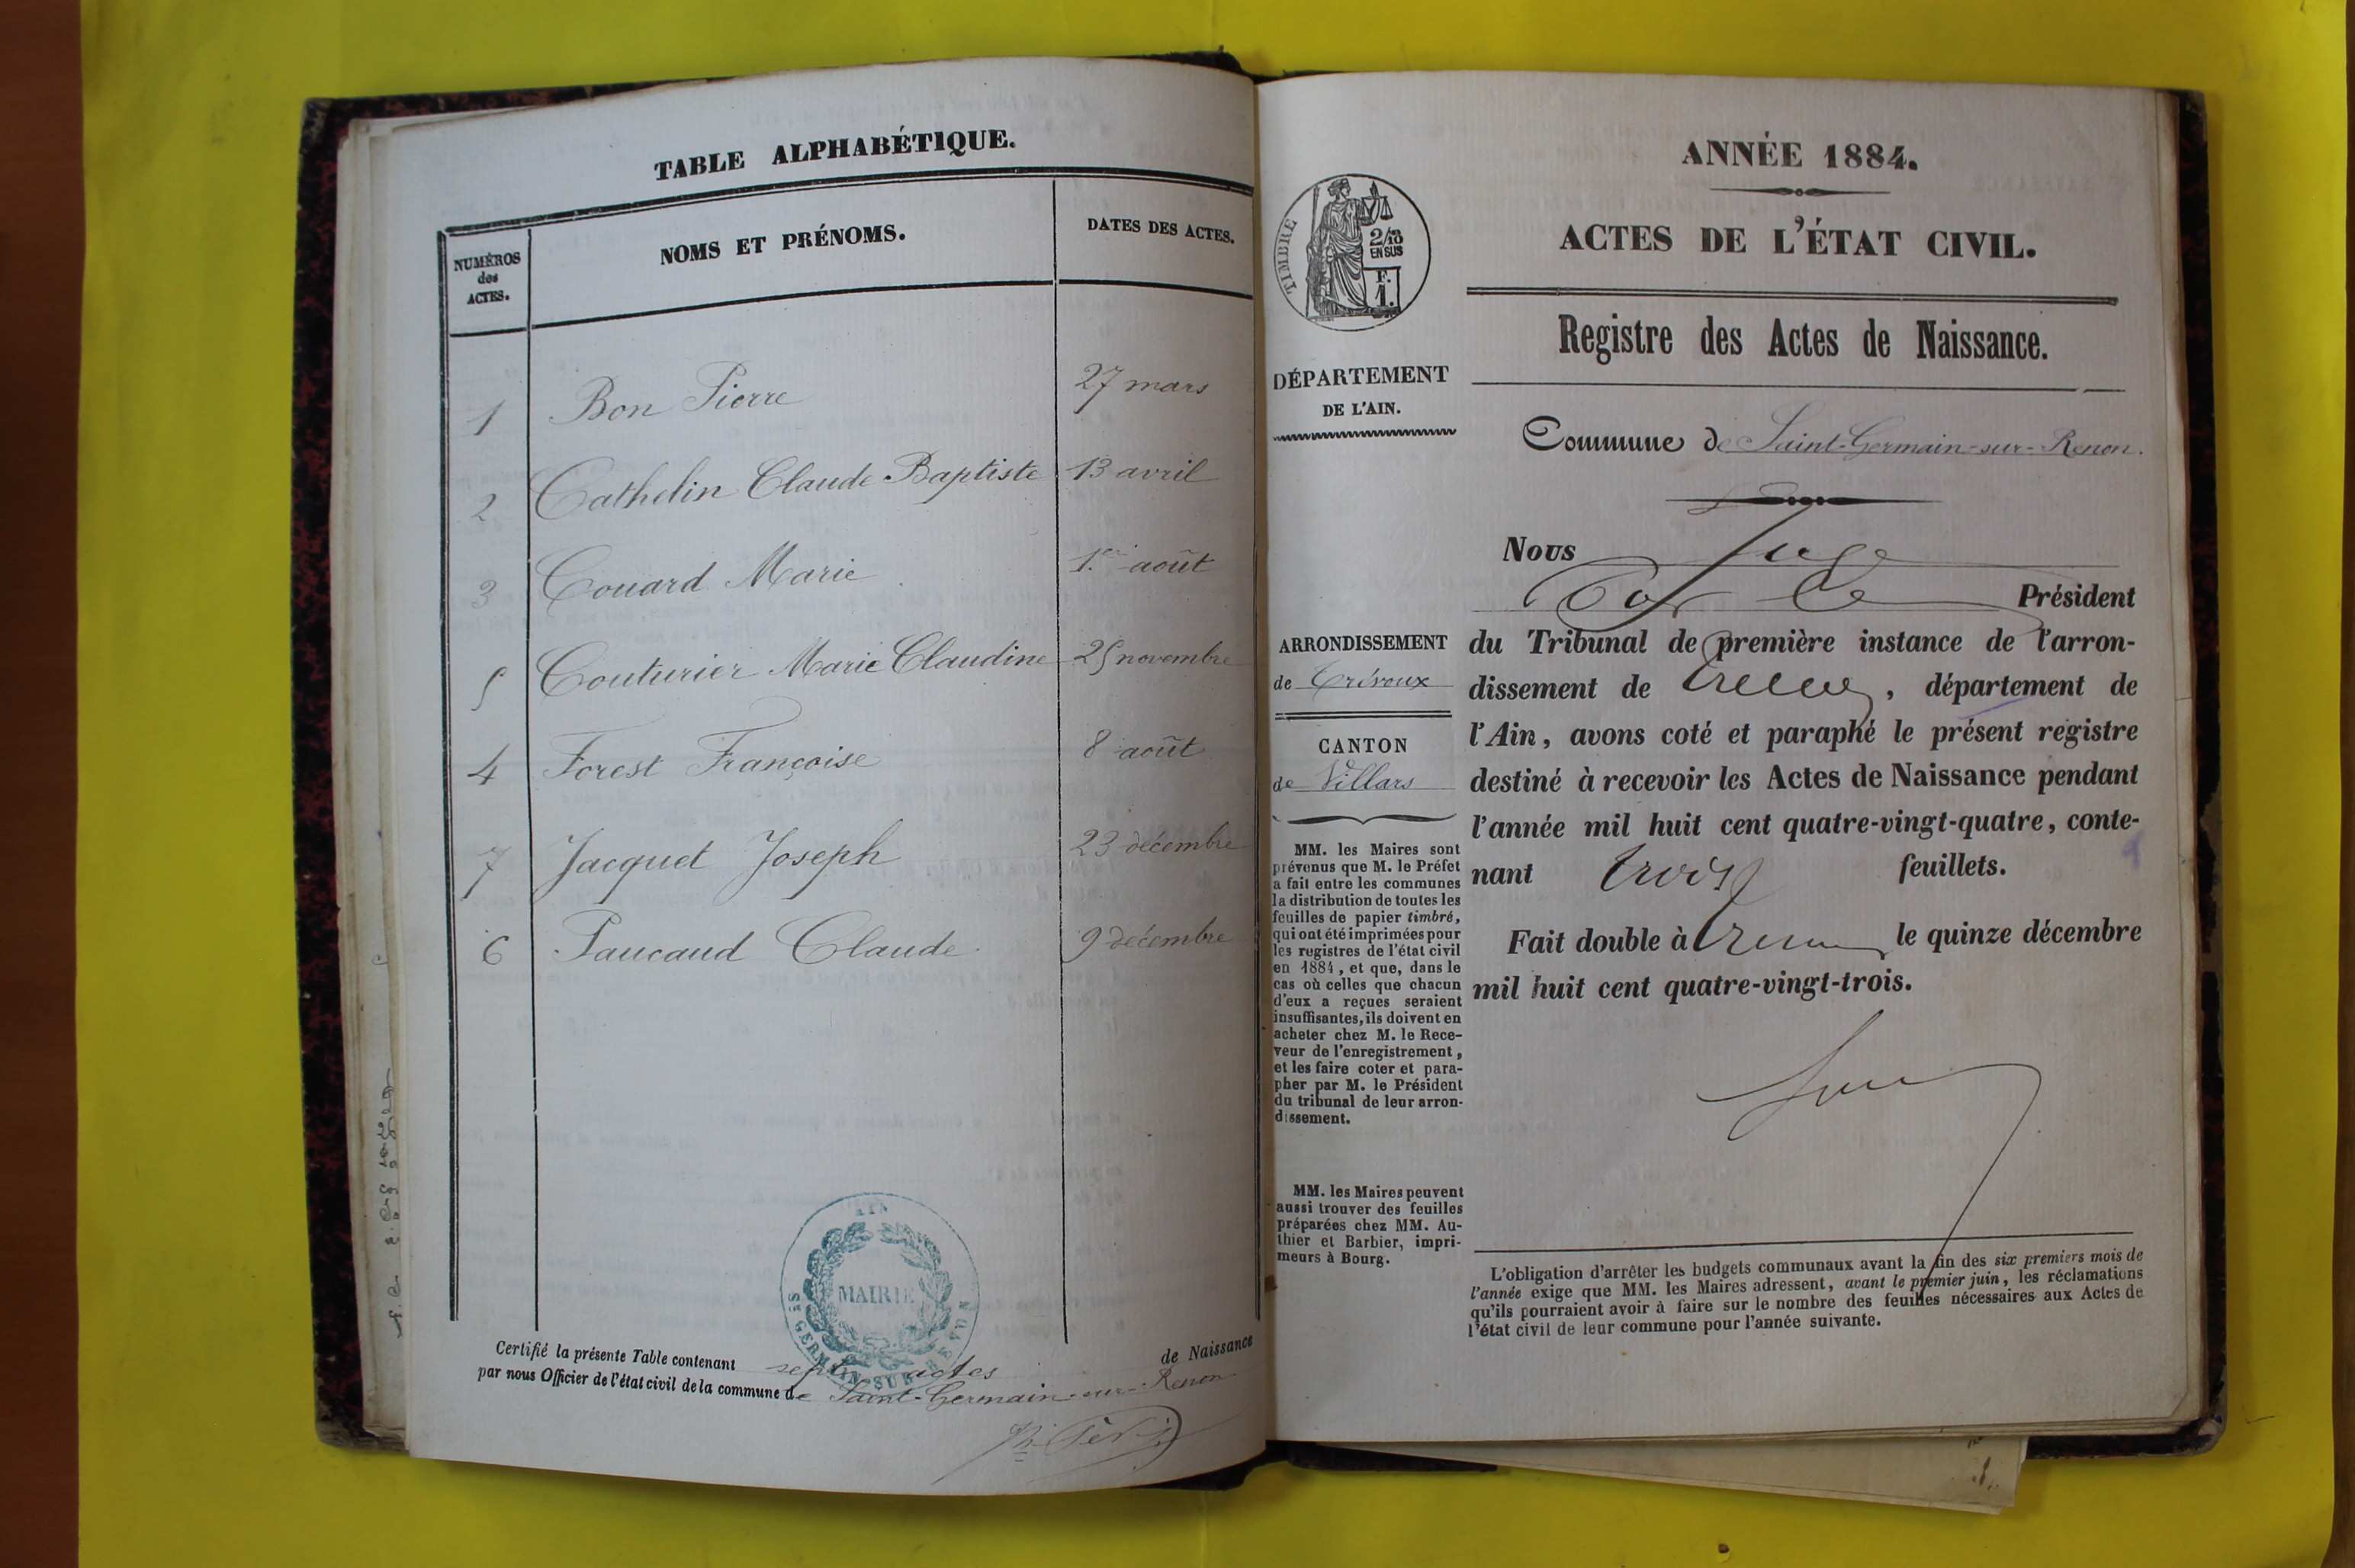 TABLE ALPHABÉTIQUE.
NUMÉROS
des
ACTES.
NOMS ET PRÉNOMS.
DATES DES ACTES.
1 Bon Pierre 27 mars
2 Cathelin Claude Baptiste 13 avril
3 Couard Marie 1.er août
5 Couturier Marie Claudine 25 novembre
4 Forest Françoise 8 août
7 Jacquet Joseph 23 décembre
6 Paucaud Claude 9 décembre
AIN
MAIRIE
Certifié la présente Table contenant sept actes de Naissance
par nous Officier de l'état civil de la commune de Saint-Germain-sur-Renon
ANNÉE 1884.
ACTES DE L'ÉTAT CIVIL.
Registre des Actes de Naissance.
TIMBRE
2/10
EN SUS
F.
1.
DÉPARTEMENT
DE L'AIN.
ARRONDISSEMENT
de Trévoux
CANTON
de Villars
MM. les Maires sont
prévenus que M. le Préfet
a fait entre les communes
la distribution de toutes les
feuilles de papier timbré,
qui ont été imprimées pour
les registres de l'état civil
en 1884, et que, dans le
cas où celles que chacun
d'eux a reçues seraient
insuffisantes, ils doivent en
acheter chez M. le Rece-
veur de l'enregistrement,
et les faire coter et para-
pher par M. le Président
du tribunal de leur arron-
dissement.
MM. les Maires peuvent
aussi trouver des feuilles
préparées chez MM. Au-
thier et Barbier, impri-
meurs à Bourg.
Commune de Saint-Germain-sur-Renon.
Nous Juge
Président
du Tribunal de première instance de l'arron-
dissement de , département de
l'Ain, avons coté et paraphé le présent registre
destiné à recevoir les Actes de Naissance pendant
l'année mil huit cent quatre-vingt-quatre, conte-
nant trois feuillets.
Fait double à le quinze décembre
mil huit cent quatre-vingt-trois.
L'obligation d'arrêter les budgets communaux avant la fin des six premiers mois de
l'année exige que MM. les Maires adressent, avant le premier juin, les réclamations
qu'ils pourraient avoir à faire sur le nombre des feuilles nécessaires aux Actes de
l'état civil de leur commune pour l'année suivante.